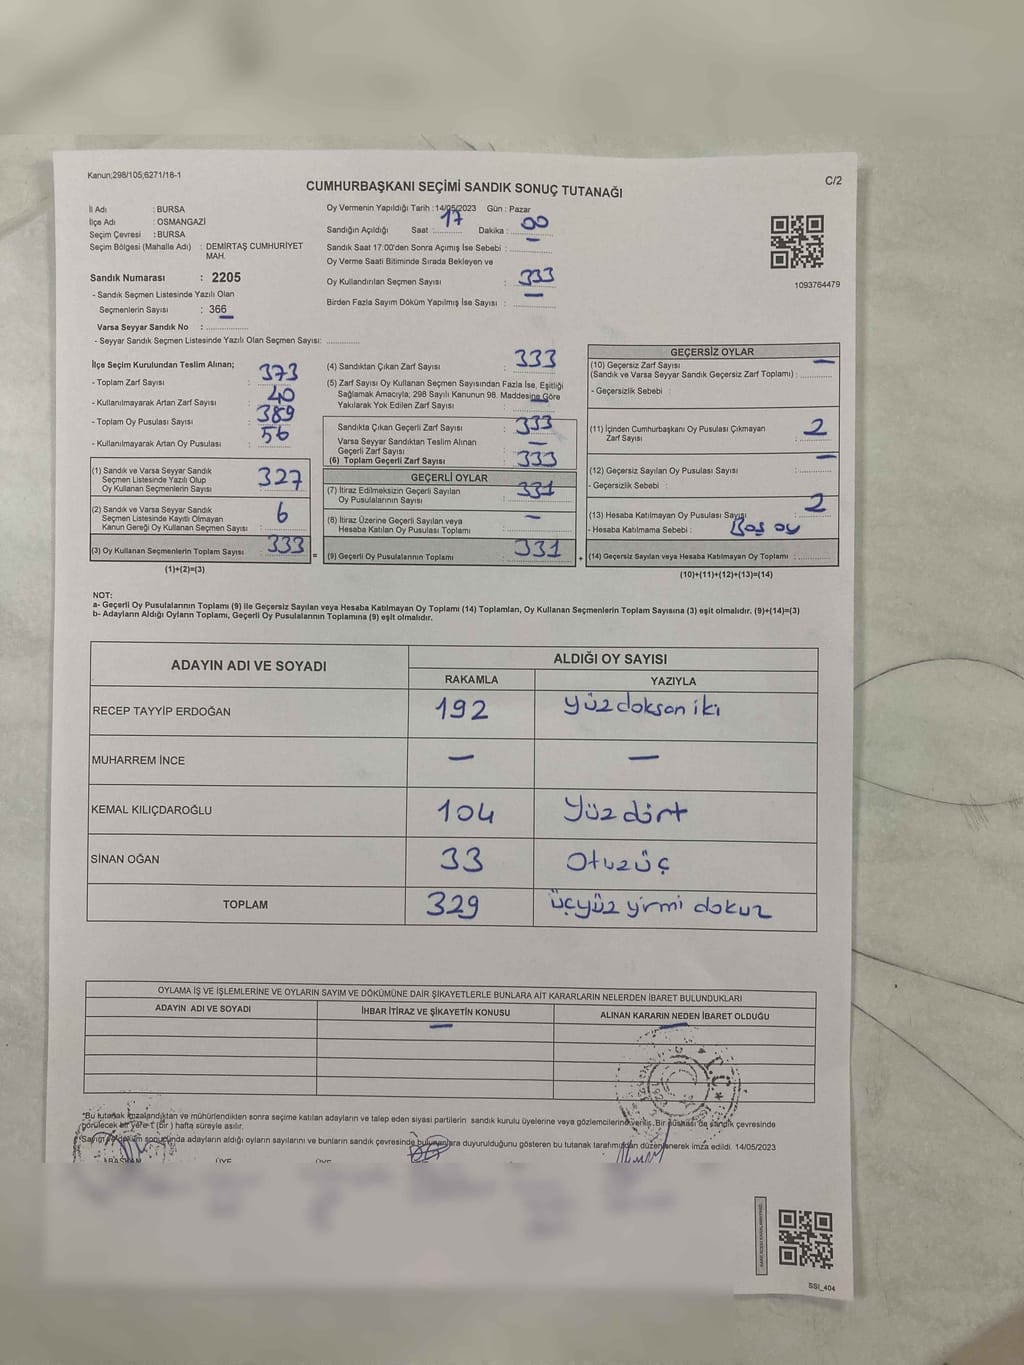 Kanun;298/105;6271/18-1
C/2
CUMHURBAŞKANI SEÇİMİ SANDIK SONUÇ TUTANAĞI
İl Adı : BURSA
İlçe Adı : OSMANGAZİ
Seçim Çevresi : BURSA
Seçim Bölgesi (Mahalle Adı) : DEMİRTAŞ CUMHURİYET MAH.
Sandık Numarası : 2205
- Sandık Seçmen Listesinde Yazılı Olan
Seçmenlerin Sayısı : 366
Varsa Seyyar Sandık No : ..............
- Seyyar Sandık Seçmen Listesinde Yazılı Olan Seçmen Sayısı: ............
Oy Vermenin Yapıldığı Tarih : 14/05/2023 Gün : Pazar
Sandığın Açıldığı Saat : 17 Dakika : 00
Sandık Saat 17:00'den Sonra Açımış İse Sebebi : —
Oy Verme Saati Bitiminde Sırada Bekleyen ve
Oy Kullandırılan Seçmen Sayısı : 333
Birden Fazla Sayım Döküm Yapılmış İse Sayısı : —
1093764479
İlçe Seçim Kurulundan Teslim Alınan;
- Toplam Zarf Sayısı : 373
- Kullanılmayarak Artan Zarf Sayısı : 40
- Toplam Oy Pusulası Sayısı : 389
- Kullanılmayarak Artan Oy Pusulası : 56
(1) Sandık ve Varsa Seyyar Sandık
Seçmen Listesinde Yazılı Olup
Oy Kullanan Seçmenlerin Sayısı : 327
(2) Sandık ve Varsa Seyyar Sandık
Seçmen Listesinde Kayıtlı Olmayan
Kanun Gereği Oy Kullanan Seçmen Sayısı : 6
(3) Oy Kullanan Seçmenlerin Toplam Sayısı : 333
(1)+(2)=(3)
(4) Sandıktan Çıkan Zarf Sayısı : 333
(5) Zarf Sayısı Oy Kullanan Seçmen Sayısından Fazla İse, Eşitliği
Sağlamak Amacıyla; 298 Sayılı Kanunun 98. Maddesine Göre
Yakılarak Yok Edilen Zarf Sayısı : —
Sandıkta Çıkan Geçerli Zarf Sayısı : 333
Varsa Seyyar Sandıktan Teslim Alınan
Geçerli Zarf Sayısı : —
(6) Toplam Geçerli Zarf Sayısı : 333
GEÇERLİ OYLAR
(7) İtiraz Edilmeksizin Geçerli Sayılan
Oy Pusulalarının Sayısı : 331
(8) İtiraz Üzerine Geçerli Sayılan veya
Hesaba Katılan Oy Pusulası Toplamı : —
= (9) Geçerli Oy Pusulalarının Toplamı : 331
GEÇERSİZ OYLAR
(10) Geçersiz Zarf Sayısı —
(Sandık ve Varsa Seyyar Sandık Geçersiz Zarf Toplamı) : ............
- Geçersizlik Sebebi :
(11) İçinden Cumhurbaşkanı Oy Pusulası Çıkmayan
Zarf Sayısı : 2
(12) Geçersiz Sayılan Oy Pusulası Sayısı : —
- Geçersizlik Sebebi :
(13) Hesaba Katılmayan Oy Pusulası Sayısı : 2
- Hesaba Katılmama Sebebi : Boş oy
+ (14) Geçersiz Sayılan veya Hesaba Katılmayan Oy Toplamı : ............
(10)+(11)+(12)+(13)=(14)
NOT:
a- Geçerli Oy Pusulalarının Toplamı (9) ile Geçersiz Sayılan veya Hesaba Katılmayan Oy Toplamı (14) Toplamları, Oy Kullanan Seçmenlerin Toplam Sayısına (3) eşit olmalıdır. (9)+(14)=(3)
b- Adayların Aldığı Oyların Toplamı, Geçerli Oy Pusulalarının Toplamına (9) eşit olmalıdır.
ADAYIN ADI VE SOYADI ALDIĞI OY SAYISI
RAKAMLA YAZIYLA
RECEP TAYYİP ERDOĞAN 192 yüzdoksan iki
MUHARREM İNCE — —
KEMAL KILIÇDAROĞLU 104 Yüz dört
SİNAN OĞAN 33 Otuzüç
TOPLAM 329 üçyüz yirmi dokuz
OYLAMA İŞ VE İŞLEMLERİNE VE OYLARIN SAYIM VE DÖKÜMÜNE DAİR ŞİKAYETLERLE BUNLARA AİT KARARLARIN NELERDEN İBARET BULUNDUKLARI
ADAYIN ADI VE SOYADI İHBAR İTİRAZ VE ŞİKAYETİN KONUSU ALINAN KARARIN NEDEN İBARET OLDUĞU
— —
T.C.
*Bu tutanak imzalandıktan ve mühürlendikten sonra seçime katılan adayların ve talep eden siyasi partilerin sandık kurulu üyelerine veya gözlemcilerine verilir. Bir nüshası da sandık çevresinde
görülecek bir yere 1 (bir ) hafta süreyle asılır.
*Sayım ve döküm sonucunda adayların aldığı oyların sayılarını ve bunların sandık çevresinde bulunanlara duyurulduğunu gösteren bu tutanak tarafımızdan düzenlenerek imza edildi. 14/05/2023
BAŞKAN ÜYE ÜYE
SSI_404